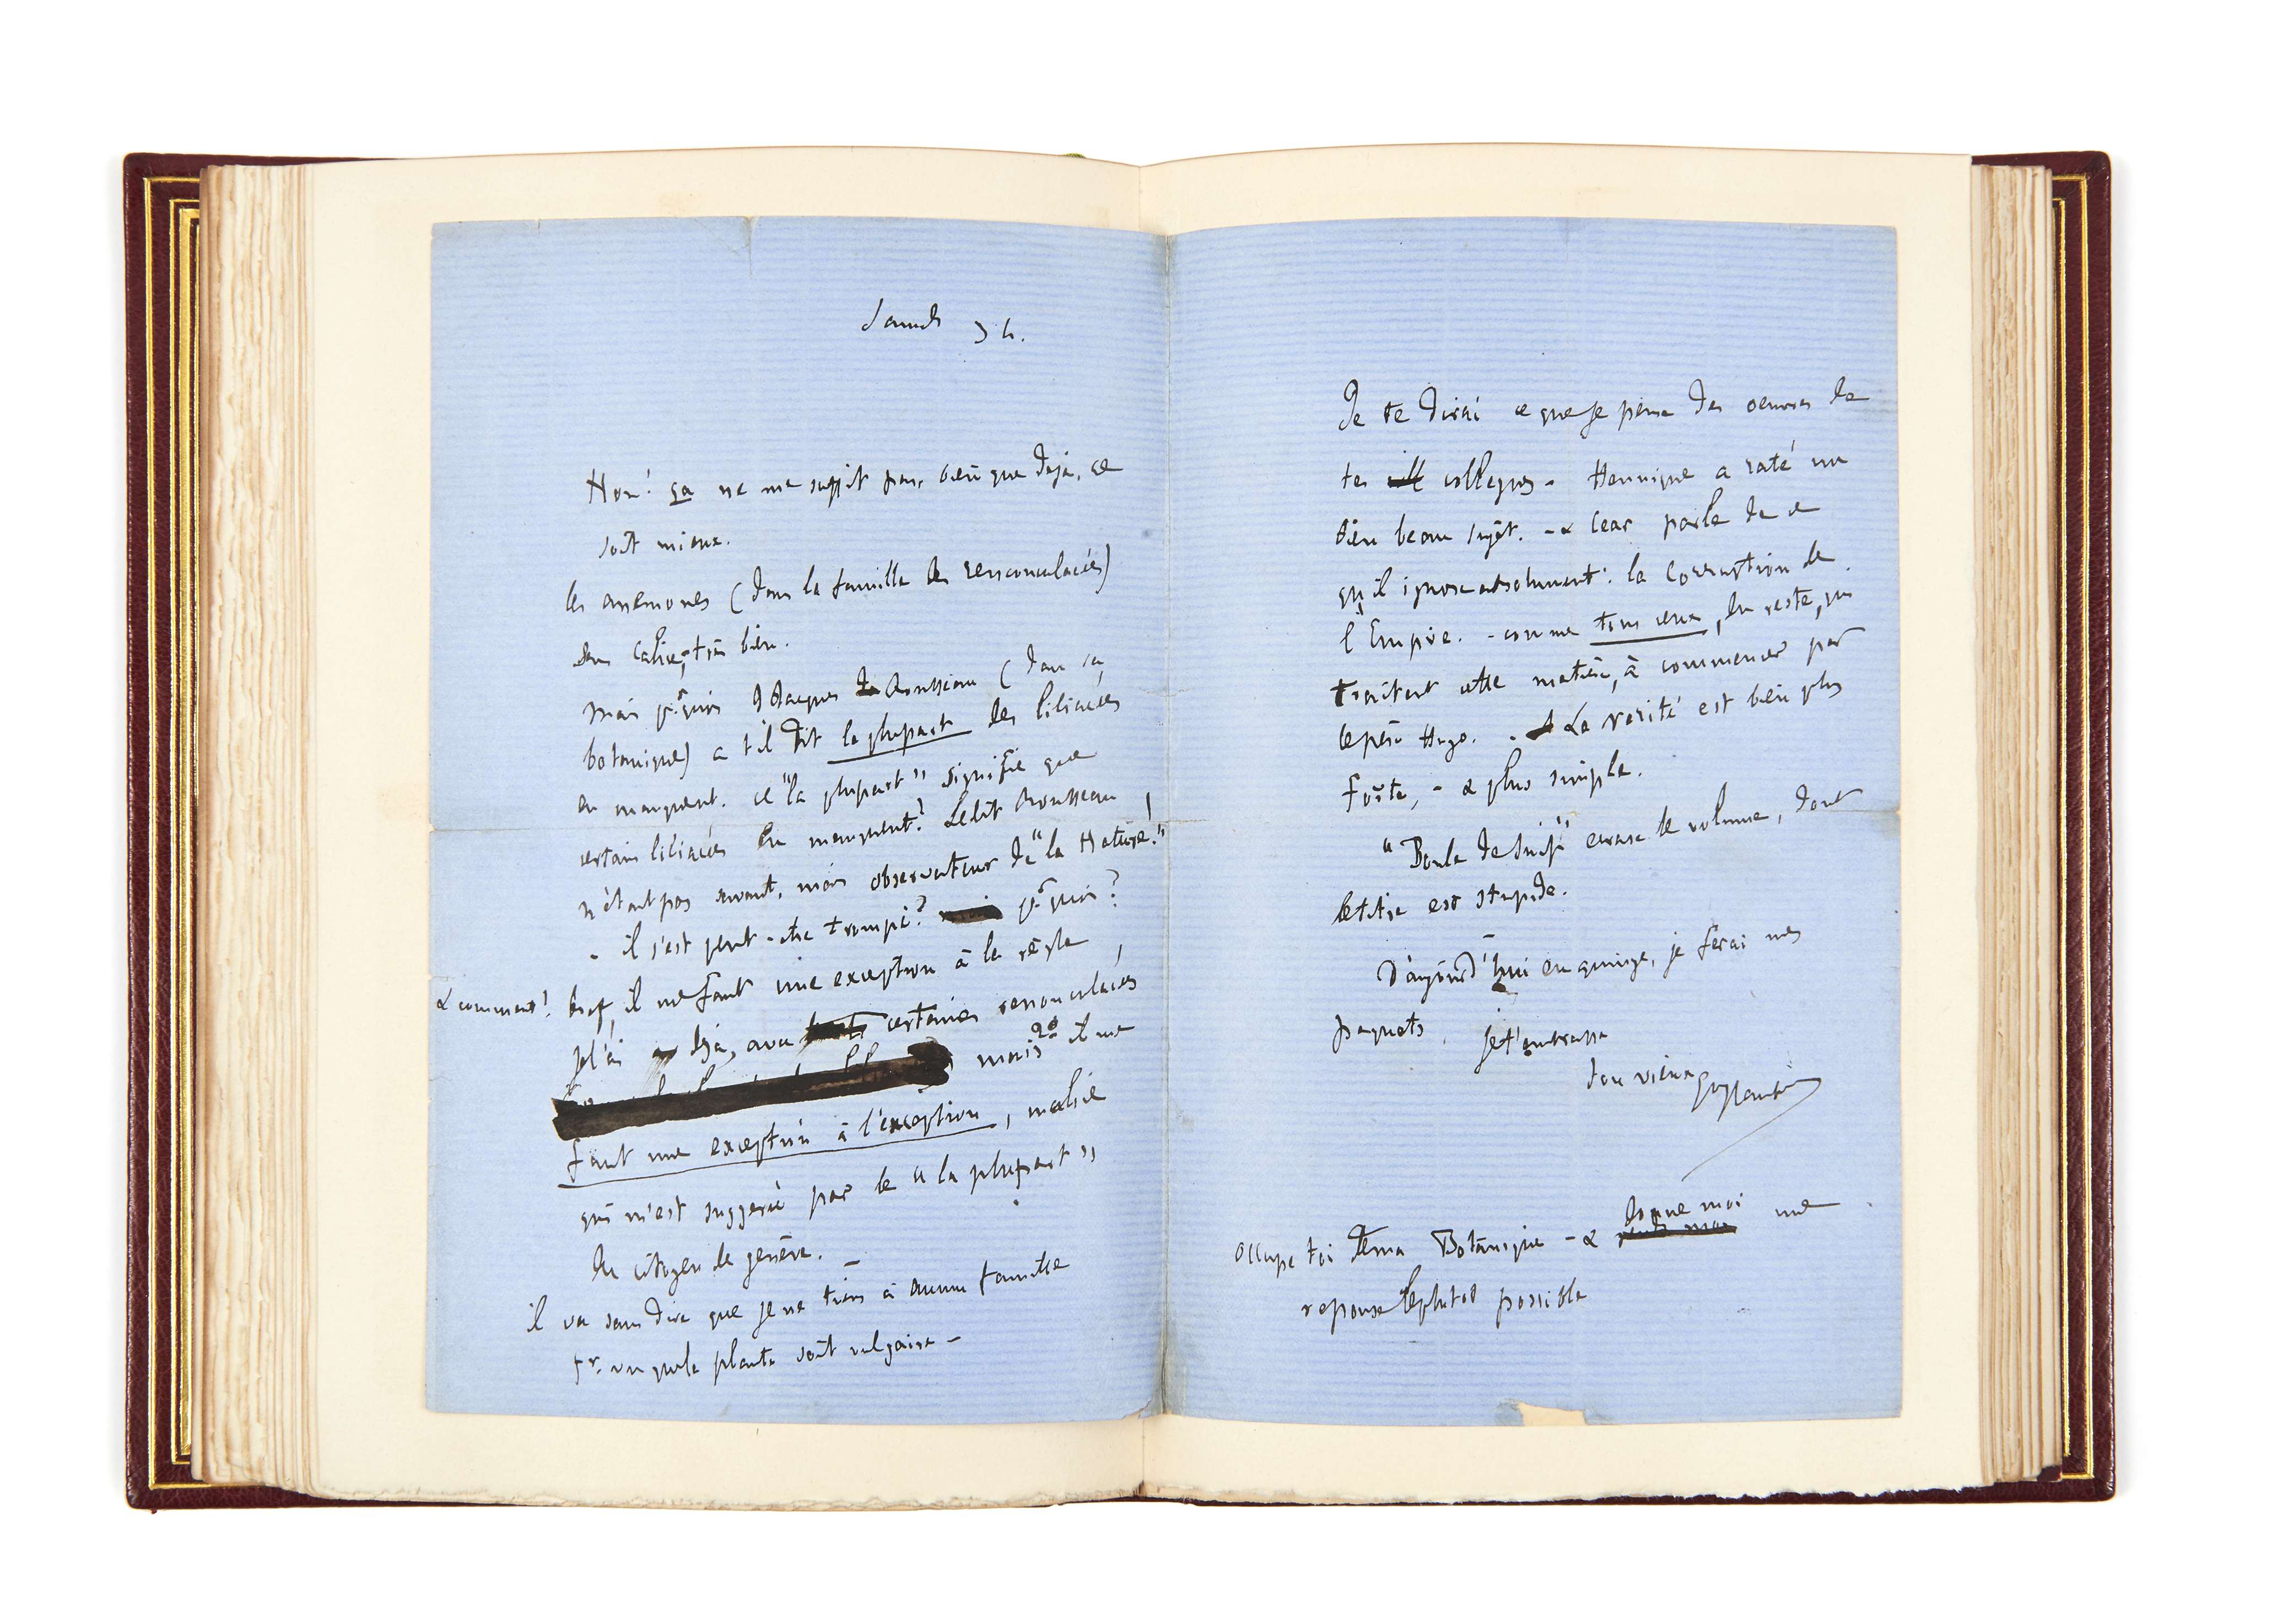 Samedi 3 h.
Non! ça ne me suffit pas, bien que déjà, ce
soit mieux.
les anemones (dans la famille des renonculacées)
sans calice, très bien.
mais pr quoi J Jacques Rousseau (dans sa
botanique) a t il dit la plupart des liliacées
en manquent. ce "la plupart" signifie que
certain liliacées en manquent? Ledit Rousseau
n'étant pas savant, mais observateur de "la Nature!"
- il s'est peut-etre trompé? pr quoi?
& comment! bref, il me faut une exception à la règle
je l'ai déjà, avec certaines renonculacées
mais 2° il me
faut une exception à l'exception, malice
qui m'est suggeré par le "la plupart"
du citoyen de genève.
il va sans dire que je ne tiens à aucune famille
pr. vu que la plante soit vulgaire -
Je te dirai ce que je pense des oeuvres de
tes collegues - Hennique a raté un
bien beau sujet. - & Cear parle de ce
qu'il ignore absolument: la Corruption de
l'Empire. - comme tous ceux, du reste, qui
traitent cette matière, à commencer par
le père Hugo. - La verité est bien plus
forte, - & plus simple.
"Boule de Suif" ecrase le volume, dont
le titre est stupide.
D'aujourd'hui en quinze, je ferai mes
paquets. je t'embrasse
ton vieux Gve Flaubert
occupe toi de ma Botanique - & donne moi une
reponse le plutot possible